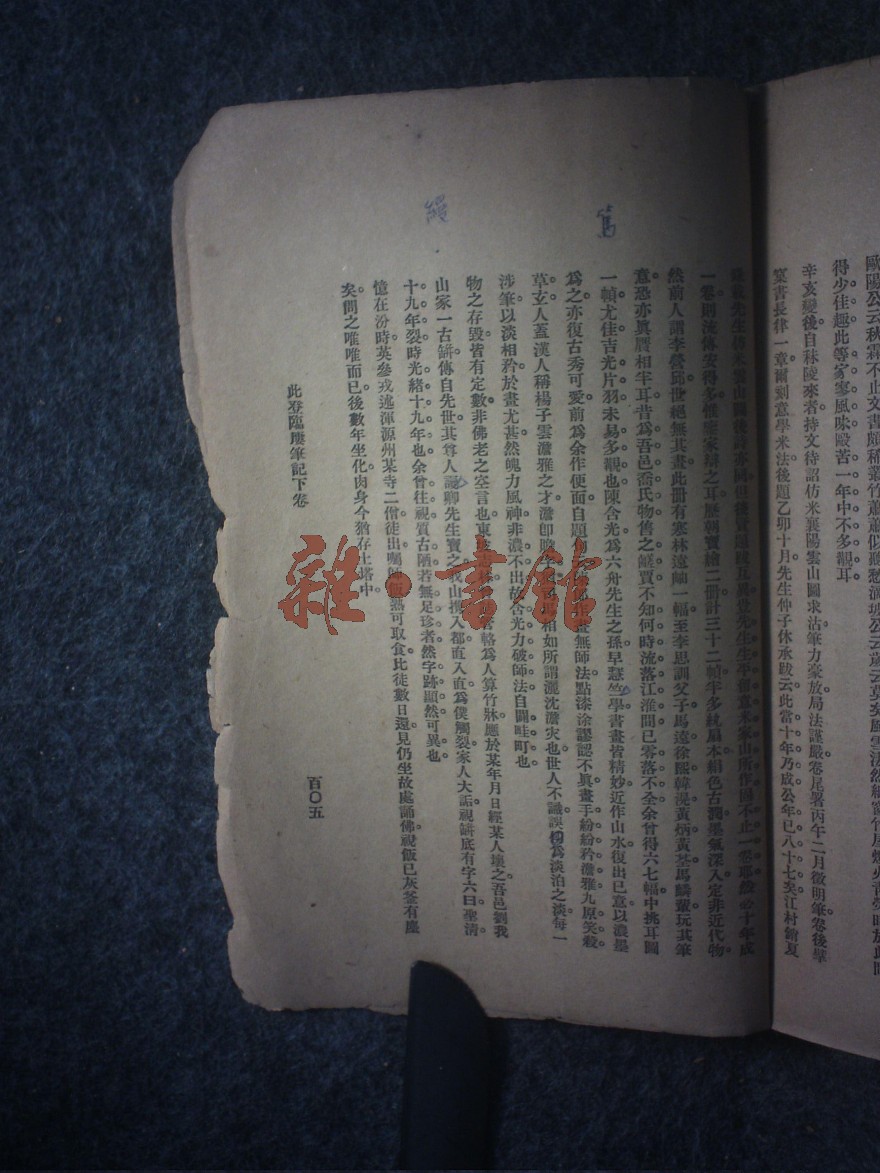 歐陽公云秋霖不止文書頗稀叢竹蕭蕭似聽愁滴
得少佳趣此等家寧風味殿苦一年中不多覯耳
辛亥變後自秣陵來者持文待詔仿米襄陽雲山圖求沽筆力豪放局法謹嚴卷尾署丙午二月徵明筆卷後擘
窠書長律一章爾刻意學米法後題乙卯十月先生仲子休承跋云此當十年乃成公年已八十七矣江村銷夏
先生生平留意米家山所作固不止一卷耶然必十年成
一卷則流傳安得多惟鑒家辯之耳歷朝寶繪二冊計三十二幀半多紈扇本絹色古潤墨氣深入定非近代物
然前人謂李營邱世絕無其畫此冊有寒林遠岫一幅至李思訓父子馬遠徐熙韓滉黃炳黃荃馬麟輩玩其筆
意恐亦眞贋相半耳昔爲吾邑喬氏物售之鹺賈不知何時流落江淮間已零落不全余曾得六七幅中挑耳圖
一幀尤佳吉光片羽未易多覯也陳含光爲六舟先生之孫早慧竺學書畫皆精妙近作山水復出已意以濃墨
爲之亦復古秀可愛前爲余作便面自題云 作畫無師法點漆涂謬認不眞畫手紛紛矜澹雅九原笑殺
草玄人蓋漢人稱楊子雲澹雅之才澹卽贍字 相如所謂灑沈澹灾也世人不識誤為淡泊之淡每一
涉筆以淡相矜於畫尤甚然魄力風神非濃不出故含光力破師法自闢畦町也
物之存毀皆有定數非佛老之空言也東 管輅爲人算竹牀應於某年月日經某人壞之吾邑劉我
山家一古缾傳自先世其尊人謾卿先生寶之我山攜入都直入直爲僕觸裂家人大詬視缾底有字六曰聖清
十九年裂時光緒十九年也余曾往視質古陋若無足珍者然字跡顯然可異也
憶在汾時英參戎述渾源州某寺二僧徒出囑師飯熟可取食比徒數日還見仍坐故處誦佛視飯已灰釜有塵
矣問之唯唯而已後數年坐化肉身今猶存土塔中
此登臨賸筆記下卷
百〇五
篤
謾
雜·書館